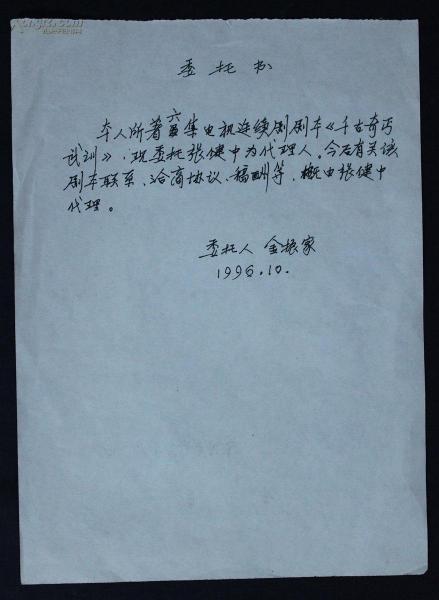 委托书
本人所著六集电视连续剧剧本《千古奇丐
武训》,现委托张健中为代理人。今后有关该
剧本联系、洽商协议、稿酬等,概由张健中
代理。
委托人 金振家
1996.10.